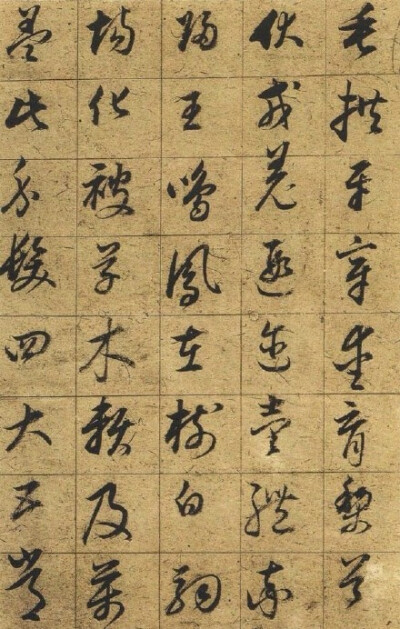 垂拱平章愛育黎首
伏戎羌遐迩壹體率
歸王鳴鳳在樹白駒
場化被草木賴及萬
盖此身髮四大五常